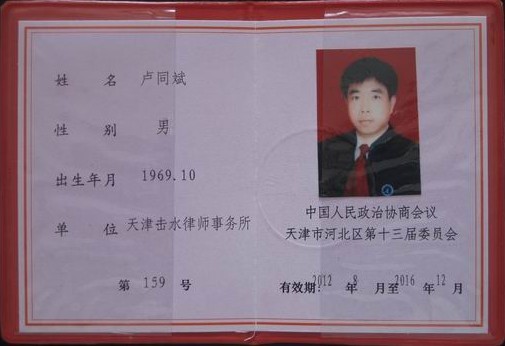 姓 名 卢同斌
性 别 男
出生年月 1969.10
单 位 天津击水律师事务所
第 159 号
中国人民政治协商会议
天津市河北区第十三届委员会
有效期:2012 年 8 月至2016 年 12 月